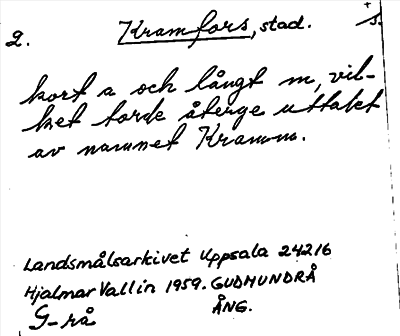 2. Kramfors, stad. +
s.
kort a och långt m, vil-
ket torde återge uttalet
av namnet Kramm.
Landsmålsarkivet Uppsala 24216
Hjalmar Vallin 1959. GUDMUNDRÅ
G-rå ÅNG.